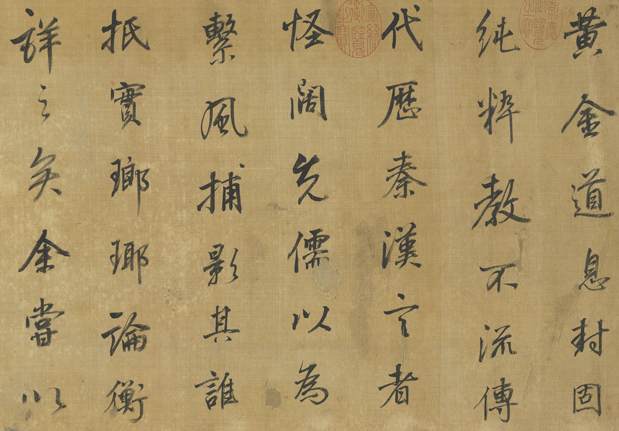 黃金道息封固
純粹教不流傳
代歷秦漢言者
怪闊先儒以為
繫風捕影其誰
抵實瑯琊論衡
詳之矣余嘗以